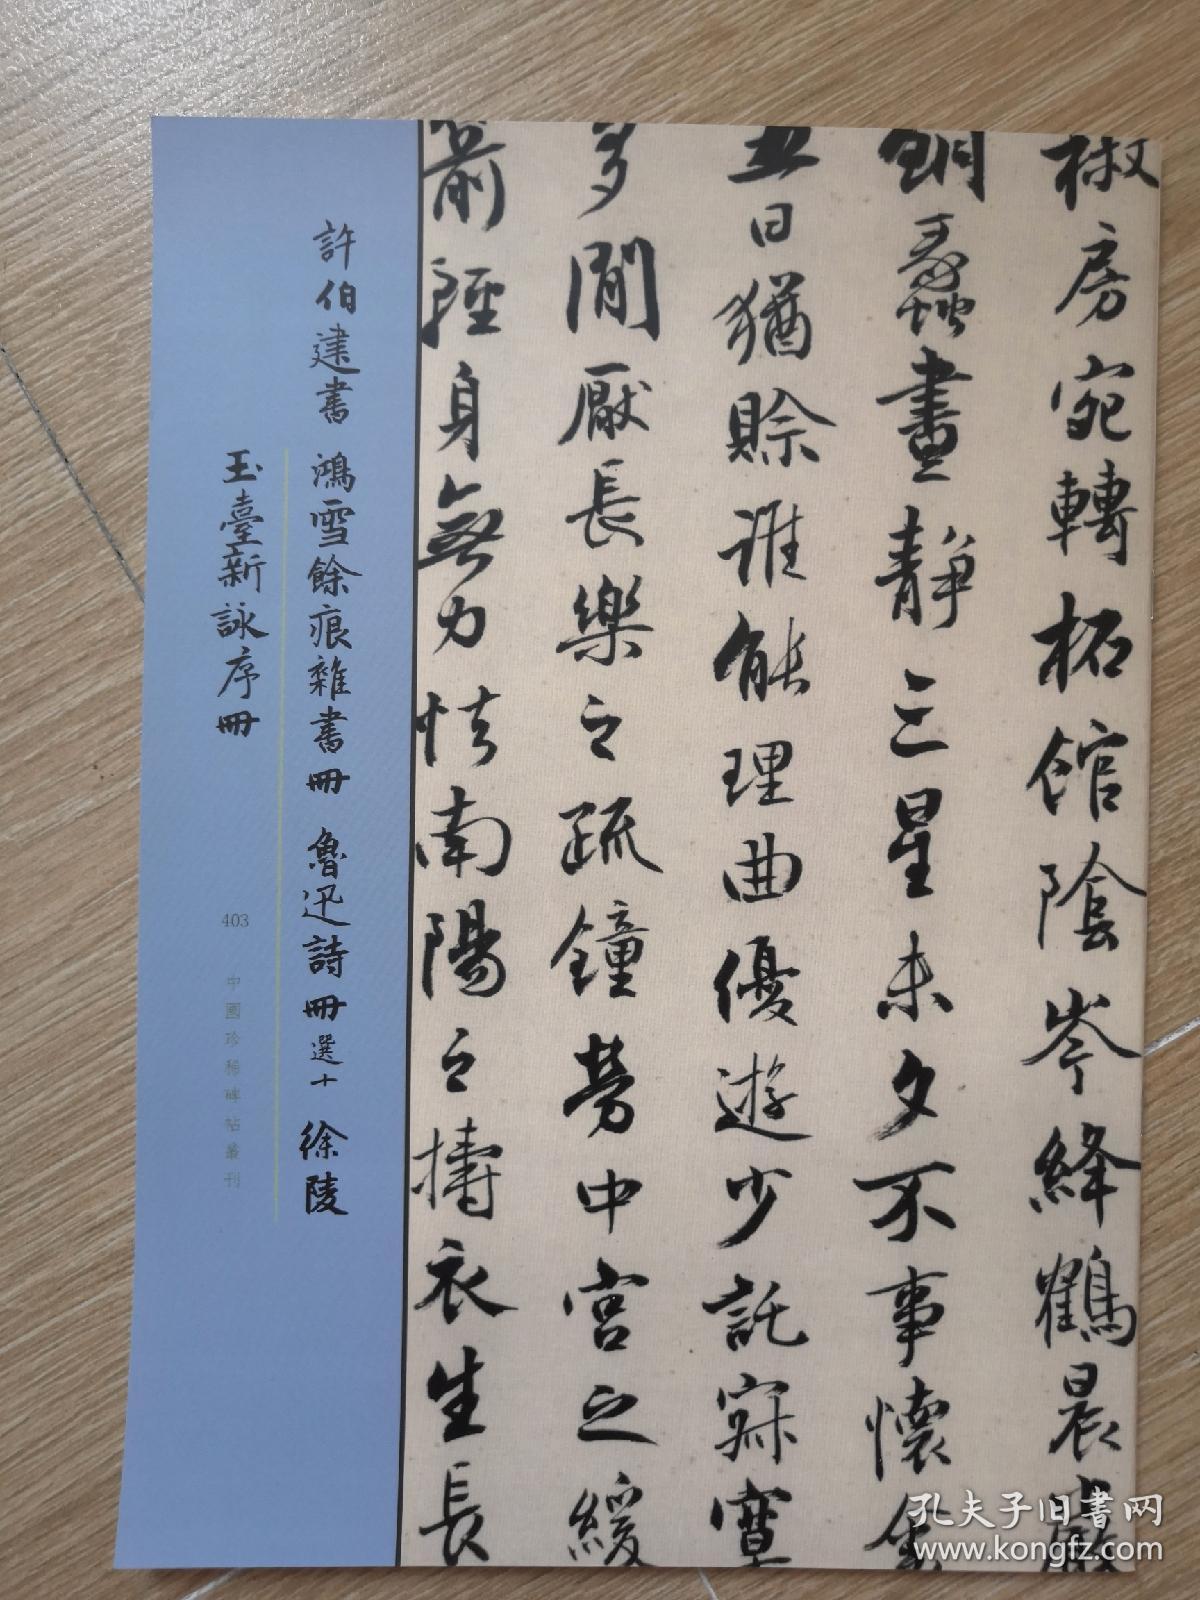 椒房宛轉柘館陰岑絳鶴晨嚴
銅蠡晝靜三星未夕不事懷衾
五日猶賒誰能理曲優遊少託寂寞
多閒厭長樂之疏鐘勞中宮之緩
箭輕身無力怯南陽之擣衣生長
許伯建書 鴻雪餘痕雜書冊 魯迅詩冊選十 徐陵
玉臺新詠序冊
403 中國珍稀碑帖叢刊
孔夫子旧书网
www.kongfz.com